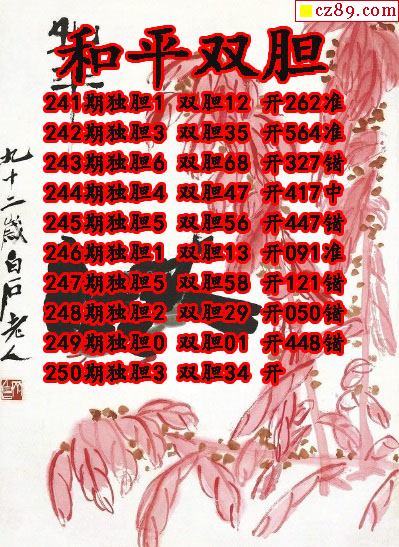 cz89.com
和平双胆
241期独胆1 双胆12 开262准
242期独胆3 双胆35 开564准
243期独胆6 双胆68 开327错
244期独胆4 双胆47 开417中
245期独胆5 双胆56 开447错
246期独胆1 双胆13 开091准
247期独胆5 双胆58 开121错
248期独胆2 双胆29 开050错
249期独胆0 双胆01 开448错
250期独胆3 双胆34 开
九十二岁白石老人